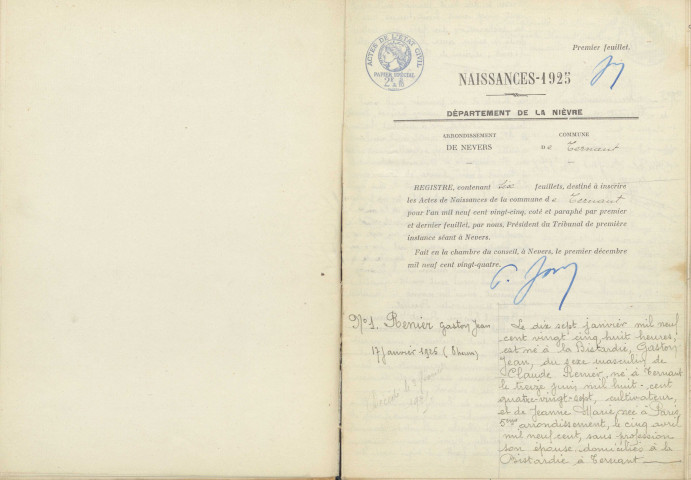 Premier feuillet.
ACTES DE L'ETAT CIVIL
PAPIER SPÉCIAL
NAISSANCES-1925
DÉPARTEMENT DE LA NIÈVRE
ARRONDISSEMENT
DE NEVERS
COMMUNE
DE Ternant
REGISTRE, contenant six feuillets, destiné à inscrire
les Actes de Naissances de la commune de Ternant
pour l'an mil neuf cent vingt-cinq, coté et paraphé par premier
et dernier feuillet, par nous, Président du Tribunal de première
instance séant à Nevers.
Fait en la chambre du conseil, à Nevers, le premier décembre
mil neuf cent vingt-quatre.
N°1. Renier Gaston Jean
17 janvier 1925
Le dix sept janvier mil neuf
cent vingt cinq, huit heures,
est né à la Bistardie, Gaston
Jean, du sexe masculin de
Claude Renier, né à Ternant
le treize juin mil huit-cent
quatre-vingt-sept, cultivateur,
et de Jeanne Marie, née à Paris,
5me arrondissement, le cinq avril
mil neuf cent, sans profession
son épouse, domiciliés à la
Bistardie, à Ternant